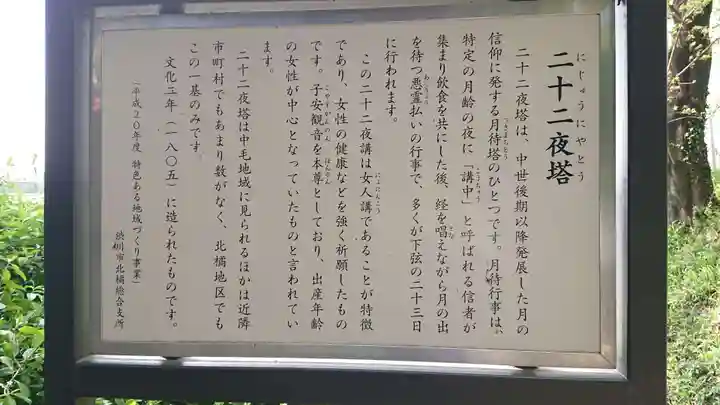 にじゅうにやとう
二十二夜塔
二十二夜塔は、中世後期以降発展した月の
信仰に発する月待塔のひとつです。月待行事は、
つきまちとう
特定の月齢の夜に「講中」と呼ばれる信者が
こうちゅう
集まり飲食を共にした後、経を唱えながら月の出
とな
を待つ悪霊払いの行事で、多くが下弦の二十三日
あくりょう
に行われます。
この二十二夜講は女人講であることが特徴
にょにんこう
であり、女性の健康などを強く祈願したもの
です。子安観音を本尊としており、出産年齢
こやすかんのん ほんぞん
の女性が中心となっていたものと言われてい
ます。
二十二夜塔は中毛地域に見られるほかは近隣
市町村でもあまり数がなく、北橘地区でも
この一基のみです。
文化二年(一八〇五)に造られたものです。
「平成20年度 特色ある地域づくり事業」
渋川市北橘総合支所